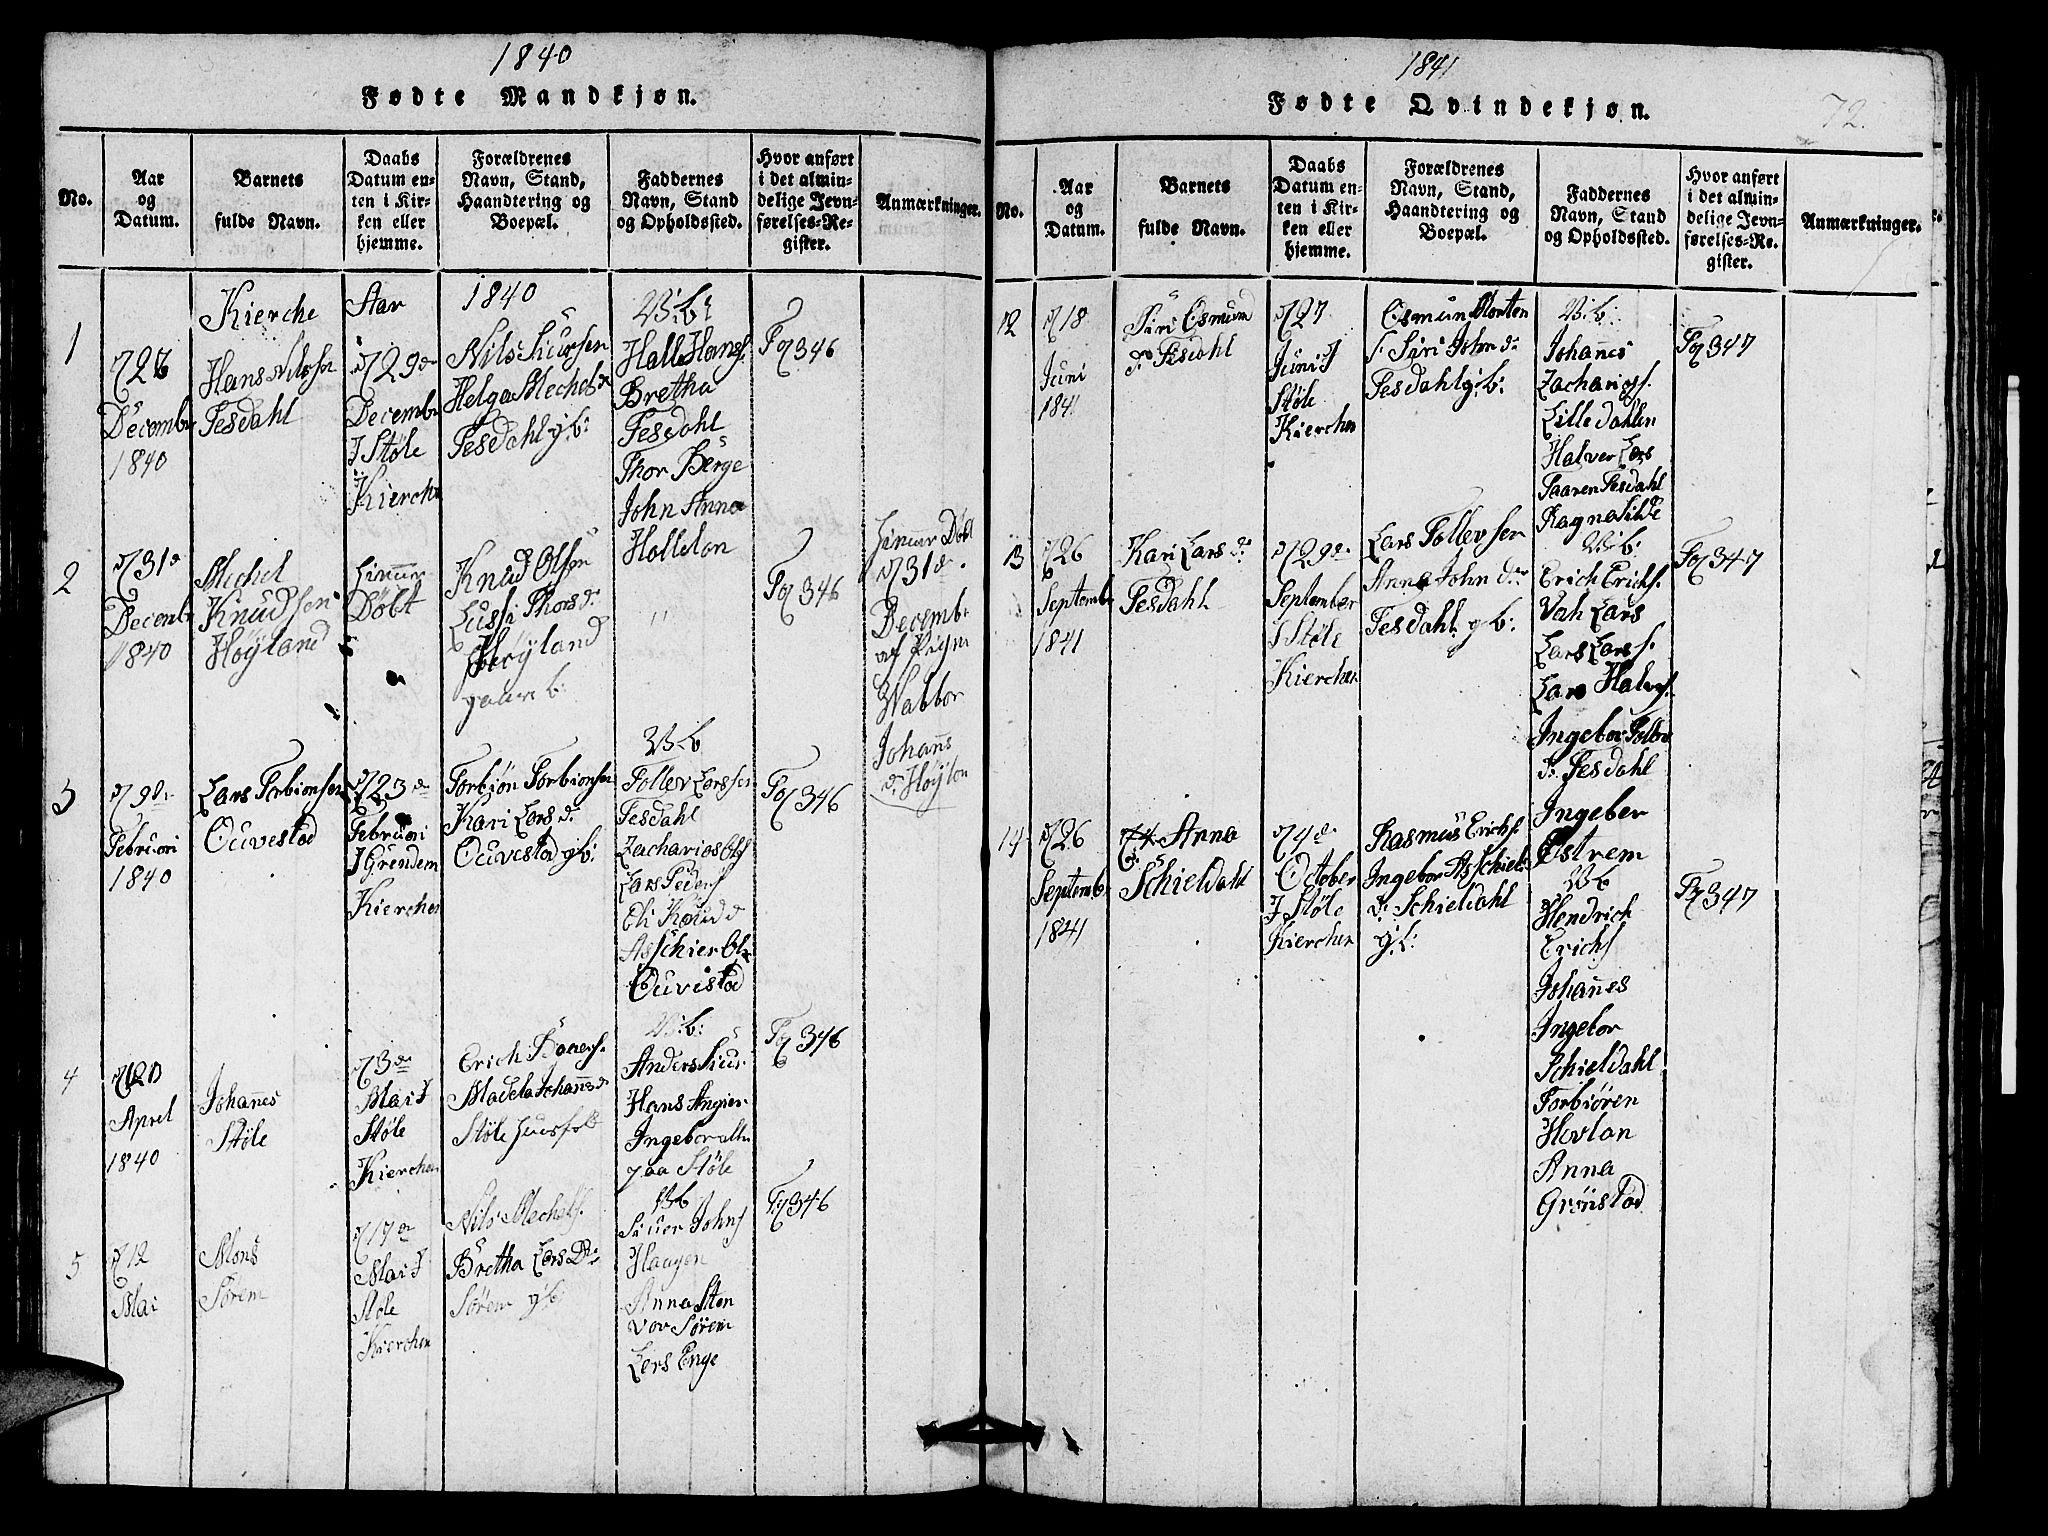 1840
Fødte Mandkjøn.
No.
Aar
og
Datum.
Barnets
fulde Navn.
Daabs
Datum en-
ten i Kir-
ken eller
hjemme.
Forældrenes
Navn, Stand,
Haandtering og
Boepæl.
Faddernes
Navn, Stand
og Opholdssted.
Hvor anført
i det almin-
delige Jevn-
førelses-Re-
gister.
Anmærkninger.
Kierche Aar 1840
1
Decembr
1840
Hans Nilssen
Tesdahl
d 29de
Decembr
I Støle
Kierche
Helga Mechels d.
Tesdahl g:b:
V:b:
Halle Hanss.
Bretha
Tesdahl
Thor Berge
John Anna
Holleland
Fol 346
2
d 31d
Decemb
1840
Mechel
Knudsen
Høyland
Døbt
Knud Olsen
Lussi Thors d.
Høyland
gaar b:
"
Fol 346
d 31 de
Decemb
af
Johans
d. Høylon
3
d 9de
Februari
1840
Lars Torbionsen
Ouvestad
d 23 de
Februari
I Grendem
Kierchen
Torbiøn Torbionsen
Kari Lars d.
Ouvestad g b:
V b
Tollev Larssen
Tesdahl
Zacharias Ols
Lars Peders
Eli Knud d
Asschier Ols
Ouvestad
Fol 346
4
Aprel
1840
Johanes
Støle
d 3 de
Mai I
Støle
Kierchen
Madela Johanes d.
Støle Huusfolk
V:b:
Anders Siur
Hans
Ingebor alle
paa Støle
Fol 346
5
d 12
Mai
Mons
Sørem
d 17 de
Mai I
Støle
Kierchen
Nils Mechels.
Bretha Lars D.
Sørem g b
V b
Siuer Johns
Haagen
Anna Sten
Vor Sørem
Lars Enge
Fol 346
1841
Fødte Qvindekjøn.
72.
No.
Aar
og
Datum.
Barnets
fulde Navn.
Daabs
Datum en-
ten i Kir-
ken eller
hjemme.
Forældrenes
Navn, Stand,
Haandtering og
Boepæl.
Faddernes
Navn, Stand
og Opholdssted.
Hvor anført
i det almin-
delige Jevn-
førelses-Re-
gister.
Anmærkninger.
12
d 18
Juni
1841
Siri Osmund
d. Tesdahl
d 27
Juni I
Støle
Kierchen
Osmun Morten
s. Siri John d.
Tesdahl g: b:
V: b:
Johanes
Zacharias s.
Lille dahlen
Halver Lars
Taaren Tesdahl
Ragnasilde
Fol 347
13
d 26
Septemb
1841
Kari Lars d.
Tesdahl
d 29 de
September
I Støle
Kierchen
Lars Tollevsen
Anna John d.
Tesdahl g b:
V: b:
Erich Erichs.
Vah Lars
Lars Lars s.
Lars Halvs.
Ingebor Tolle
d. Tesdahl
Ingeber
Østrem
Fol 347
14
d 26
Septemb
1841
Anna
Schieldahl
d 4 de
October
I Støle
Kierchen
Rasmus Erichs.
Ingebor Asschiel
d. Schieldahl
g: b:
V b
Hendrich
Erichs
Johanes
Ingebor
Schieldahl
Torbiøren
Hovlan
Anna
Grønstad
Fol 347